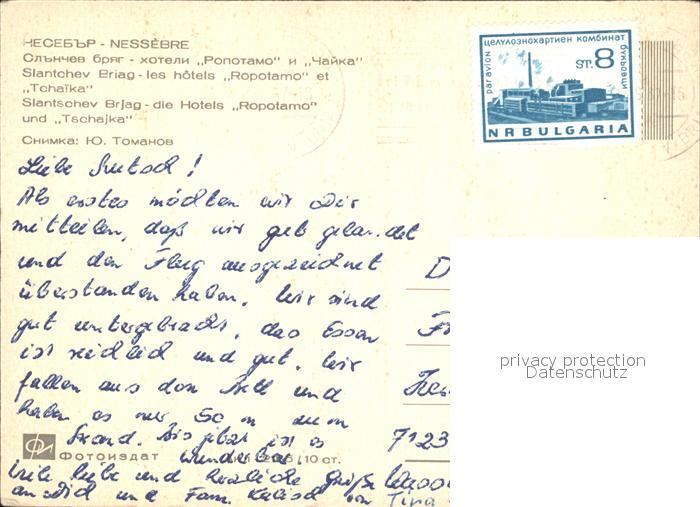 НЕСЕБЪР - NESSÈBRE
Слънчев бряг - хотели „Ропотамо" и „Чайка"
Slantchev Briag - les hôtels „Ropotamo" et
„Tchaïka"
Slantschev Brjag - die Hotels „Ropotamo"
und „Tschajka"
Снимка: Ю. Томанов
целулозно­хартиен комбинат
букьовци
par avion
ST. 8
NR BULGARIA
Liebe !
Als erstes möchten wir Dir
mitteilen, daß wir gut gelandet
und den Flug ausgezeichnet
überstanden haben. Wir sind
gut untergebracht, das Essen
ist reichlich und gut. Wir
fallen aus dem Bett und
haben es nur 50 m zum
Strand. Bis jetzt ist es
wunderbar.
Фотоиздат /10 ст.
Viele liebe und herzliche Grüße
an Dich und Fam. von Tina
7123
privacy protection
Datenschutz